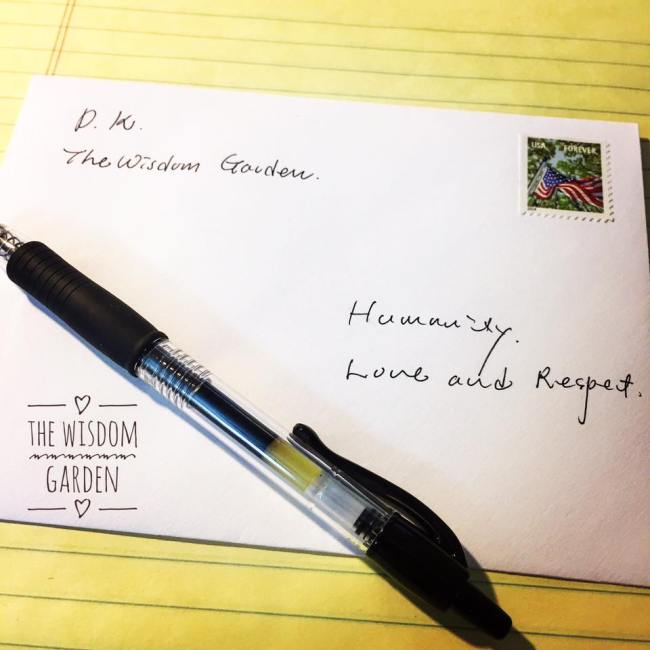 D. K.
The Wisdom Garden.
USA FOREVER
Humanity.
Love and Respect.
THE WISDOM
GARDEN